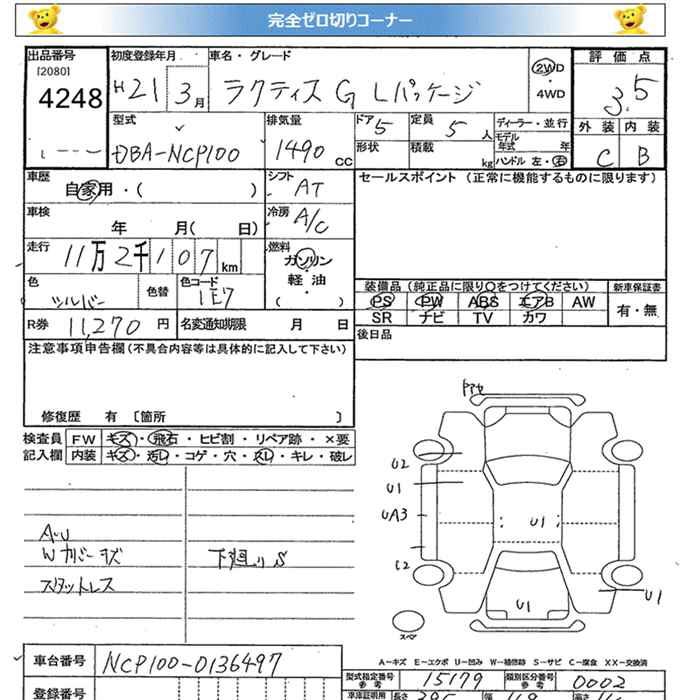 完全ゼロ切りコーナー
出品番号 初度登録年月 車名・グレード 評価点
[2080]
4248 H21 3月 ラクティス G Lパッケージ 2WD 4WD 3.5
型式 排気量 ドア 5 定員 5 人 ディーラー・並行 外装 内装
DBA-NCP100 1490 CC 形状 積載 kg モデル年式 年 ハンドル 左・右 C B
車歴 自家用・( ) シフト AT セールスポイント (正常に機能するものに限ります)
車検 年 月( 日) 冷房 A/C
走行 11万2千107km 燃料 ガソリン 軽油 ( )
色 シルバー 色替 色コード 1E7 装備品 (純正品に限り○をつけてください) 新車保証書
PS PW ABS エアB AW 有・無
SR ナビ TV カワ
R券 11,270 円 名変通知期限 月 日 後日品
注意事項申告欄 (不具合内容等は具体的に記入して下さい)
修復歴 有 〔箇所 〕
検査員 FW キズ・飛石・ヒビ割・リペア跡・×要
記入欄 内装 キズ・汚レ・コゲ・穴・スレ・キレ・破レ
U2
U1
UA3 U1
U1 U1
A,U
Wカバーキズ 下廻りS
スタットレス
スペア
A－キズ E－エクボ U－凹み W－補修跡 S－サビ C－腐食 XX－交換済
車台番号 NCP100-0136497
型式指定番号 参考 15179 類別区分番号 参考 0002
登録番号 車庫証明用 長さ 395 幅 高さ